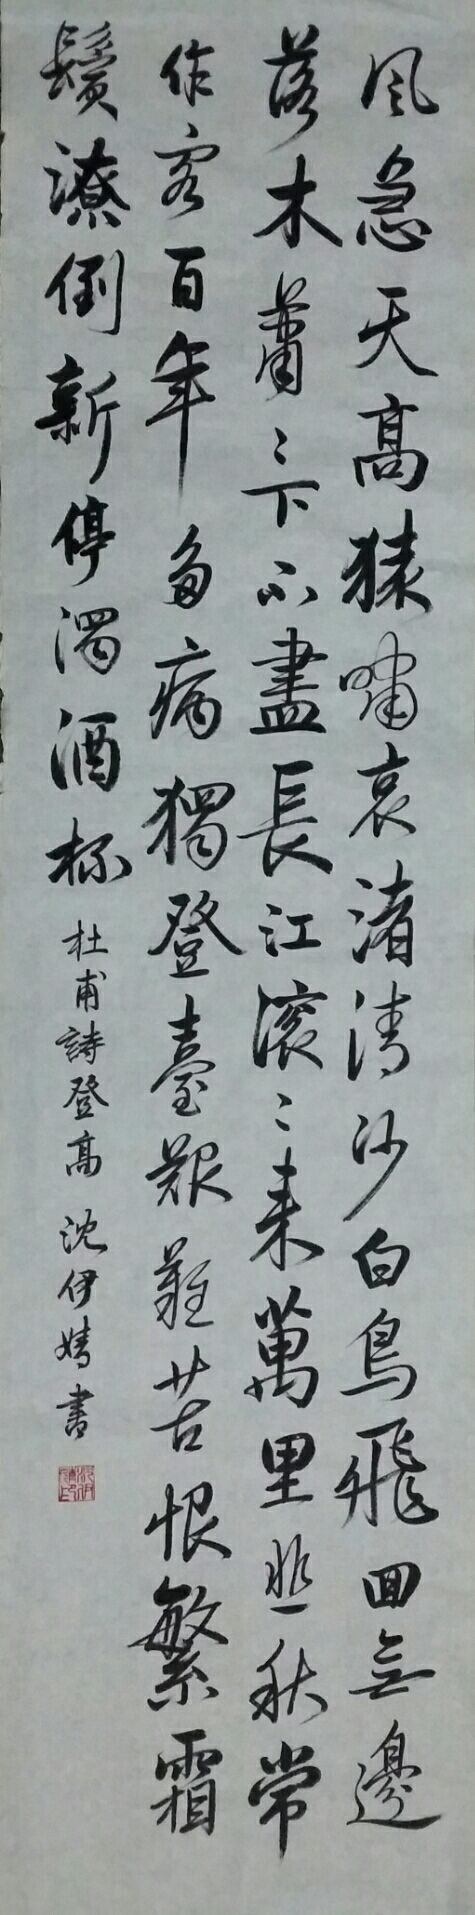 風急天高猿嘯哀渚清沙白鳥飛回無邊
落木蕭〻下不盡長江滾〻来萬里悲秋常
作客百年多病獨登臺艱難苦恨繁霜
鬢潦倒新停濁酒杯
杜甫詩登高 沈伊婧書